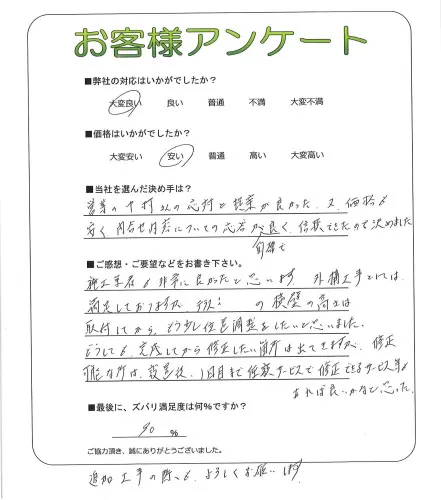 お客様アンケート
■弊社の対応はいかがでしたか？
大変良い 良い 普通 不満 大変不満
■価格はいかがでしたか？
大変安い 安い 普通 高い 大変高い
■当社を選んだ決め手は？
営業の中村さんの応対と提案が良かった。又、価格も
安く、問合せ内容についての応答が良く、信頼できたので決めました
■ご感想・ご要望などをお書き下さい。
施工業者も非常に良かったと思います 外構工事としては、
満足しておりますが、 の横壁の高さは
取付してから、もう少し位置調整をしたいと思いました。
どうしても、完成してから修正したい箇所は出てきますが、修正
可能な所は、設置後、1日目まで任意サービスで修正できるサービス等も
あれば良いかなと思った。
■最後に、ズバリ満足度は何%ですか？
90 %
ご協力頂き、誠にありがとうございました。
追加工事の際も、よろしくお願いします